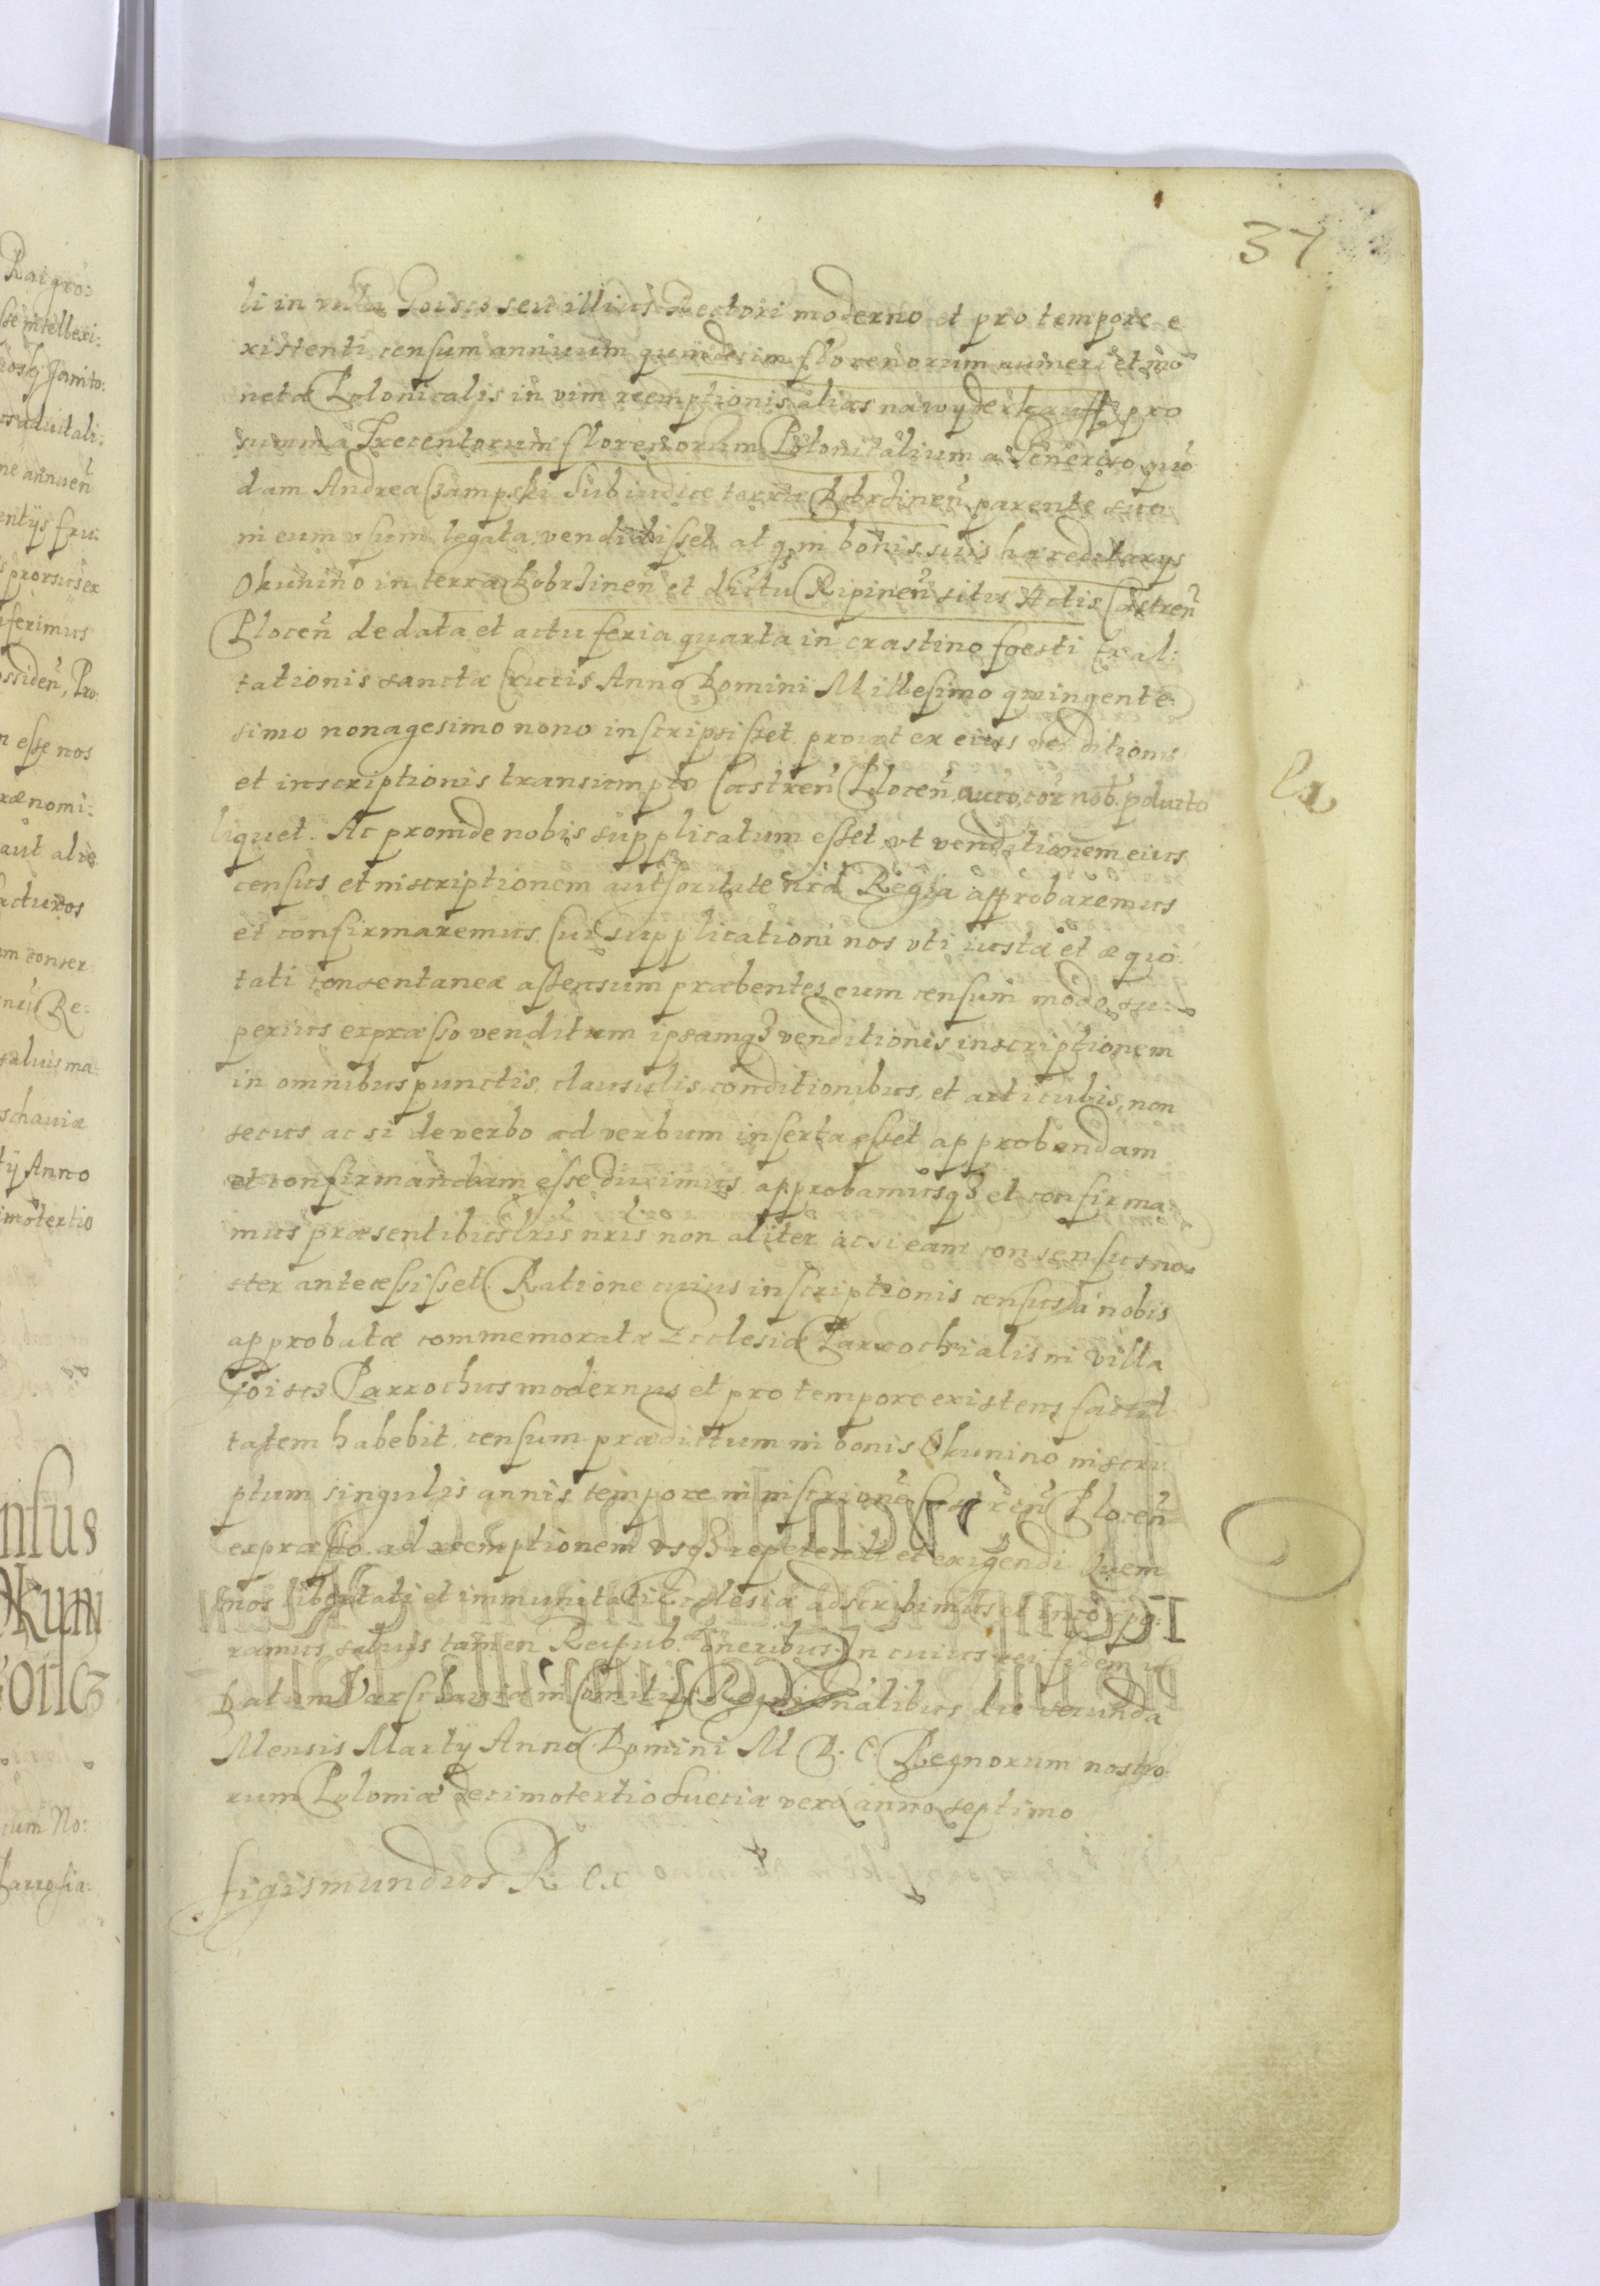 37
li in villa Goisco seu illius Rectori moderno et pro tempore e
xistenti censum annuum quindecim florenorum numeri et mo
netæ Polonicalis in vim reemptionis alias na wyderkauff pro
summa Trecentorum florenorum Polonicalium a Generoso quo
dam Andrea Czampski Subiudice terræ Dobrzinen̄ parente suo
in eum vsum legata, vendidisset, atq3 in bonis suis hæreditarys
Okunino in terra Dobrzinen̄ et dictu Ripinen̄ sitis Actis Castren̄
Plocen̄ de data et actu feria quarta in crastino foesti Exal:
tationis sanctæ Crucis Anno Domini Millesimo quingente
simo nonagesimo nono inscripsisset prout ex eius venditionis
et inscriptionis transumpto Castren̄ Plocen̄ auco, cor̄ nob. pducto
liquet. Ac proinde nobis supplicatum esset vt venditionem eius
census et inscriptionem authoritate nrā Regia approbaremus
et confirmaremus. Cui supplicationi nos vti iustæ et æqui
tati consentaneæ assensum præbentes, eum censum modo su:
perius expræsso venditum ipsamq3 venditionis inscriptionem
in omnibus punctis, clausulis, conditionibus, et articulis, non
secus ac si de verbo ad verbum inserta esset approbandam
et confirmandam esse duximus, approbamusq3 et confirma
mus præsentibus lr̄is nr̄is non aliter ac si eam consensus no
ster antecessisset. Ratione cuius inscriptionis census a nobis
approbatæ commemoratæ Ecclesiæ Parrochialis in villa
Goisco Parrochus modernus et pro tempore existens facul
tatem habebit, censum prædictum in bonis Okunino inscri
ptum singulis annis tempore in inscrione Castren̄ Plocen̄
expræsso ad reemptionem vsq3 repetendi et exigendi Quem
nos libertati et immunitati Ecclesiæ adscribimus et incorpo:
ramus, saluis tamen Reipub. oneribus. In cuius rei fidem
Datum Varschauiæ in Comitijs Regni nalibus die secunda
Mensis Martij Anno Domini M. D. C. Regnorum nostro
rum Poloniæ decimotertio Sueciæ vero anno septimo
Sigismundus Rex